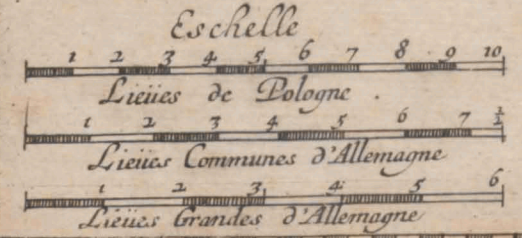 Eschelle
1 2 3 4 5 6 7 8 9 10
Lieües de Pologne .
1 2 3 4 5 6 7 ½
Lieües Communes d'Allemagne
1 2 3 4 5 6
Lieües Grandes d'Allemagne